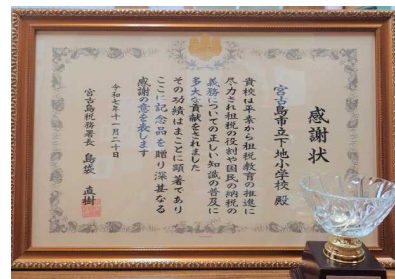 感謝状
宮古島市立下地小学校 殿
貴校は平素から租税教育の推進に
尽力され租税の役割や国民の納税の
義務についての正しい知識の普及に
多大な貢献をされました
その功績はまことに顕著であり
ここに記念品を贈り深甚なる
感謝の意を表します
令和七年十一月二十日
宮古島税務署長 島袋 直樹